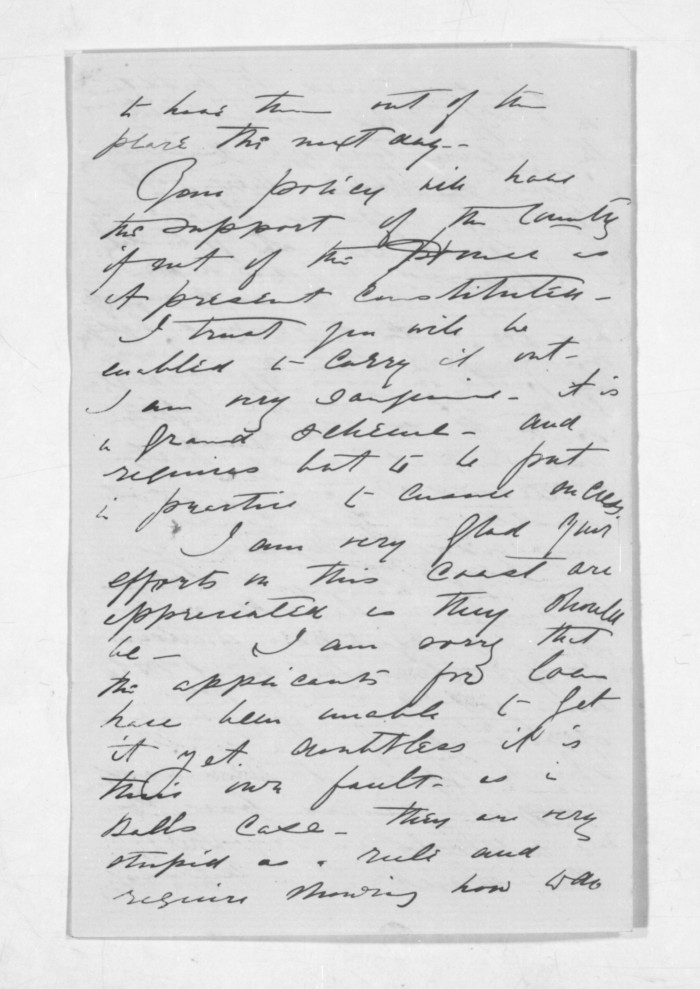 to have them out of the
place the next day--
Your policy will have
the support of the Country
if not of the House as
at present Constituted -
I trust you will be
enabled to carry it out -
I am very sanguine - it is
a grand scheme - and
requires but to be put
in practice to ensure success.
I am very glad your
efforts on this Coast are
appreciated as they should
be - I am sorry that
the applicants for loan
have been unable to get
it yet. doubtless it is
their own fault - as in
Balls Case - they are very
stupid as a rule and
require showing how to do